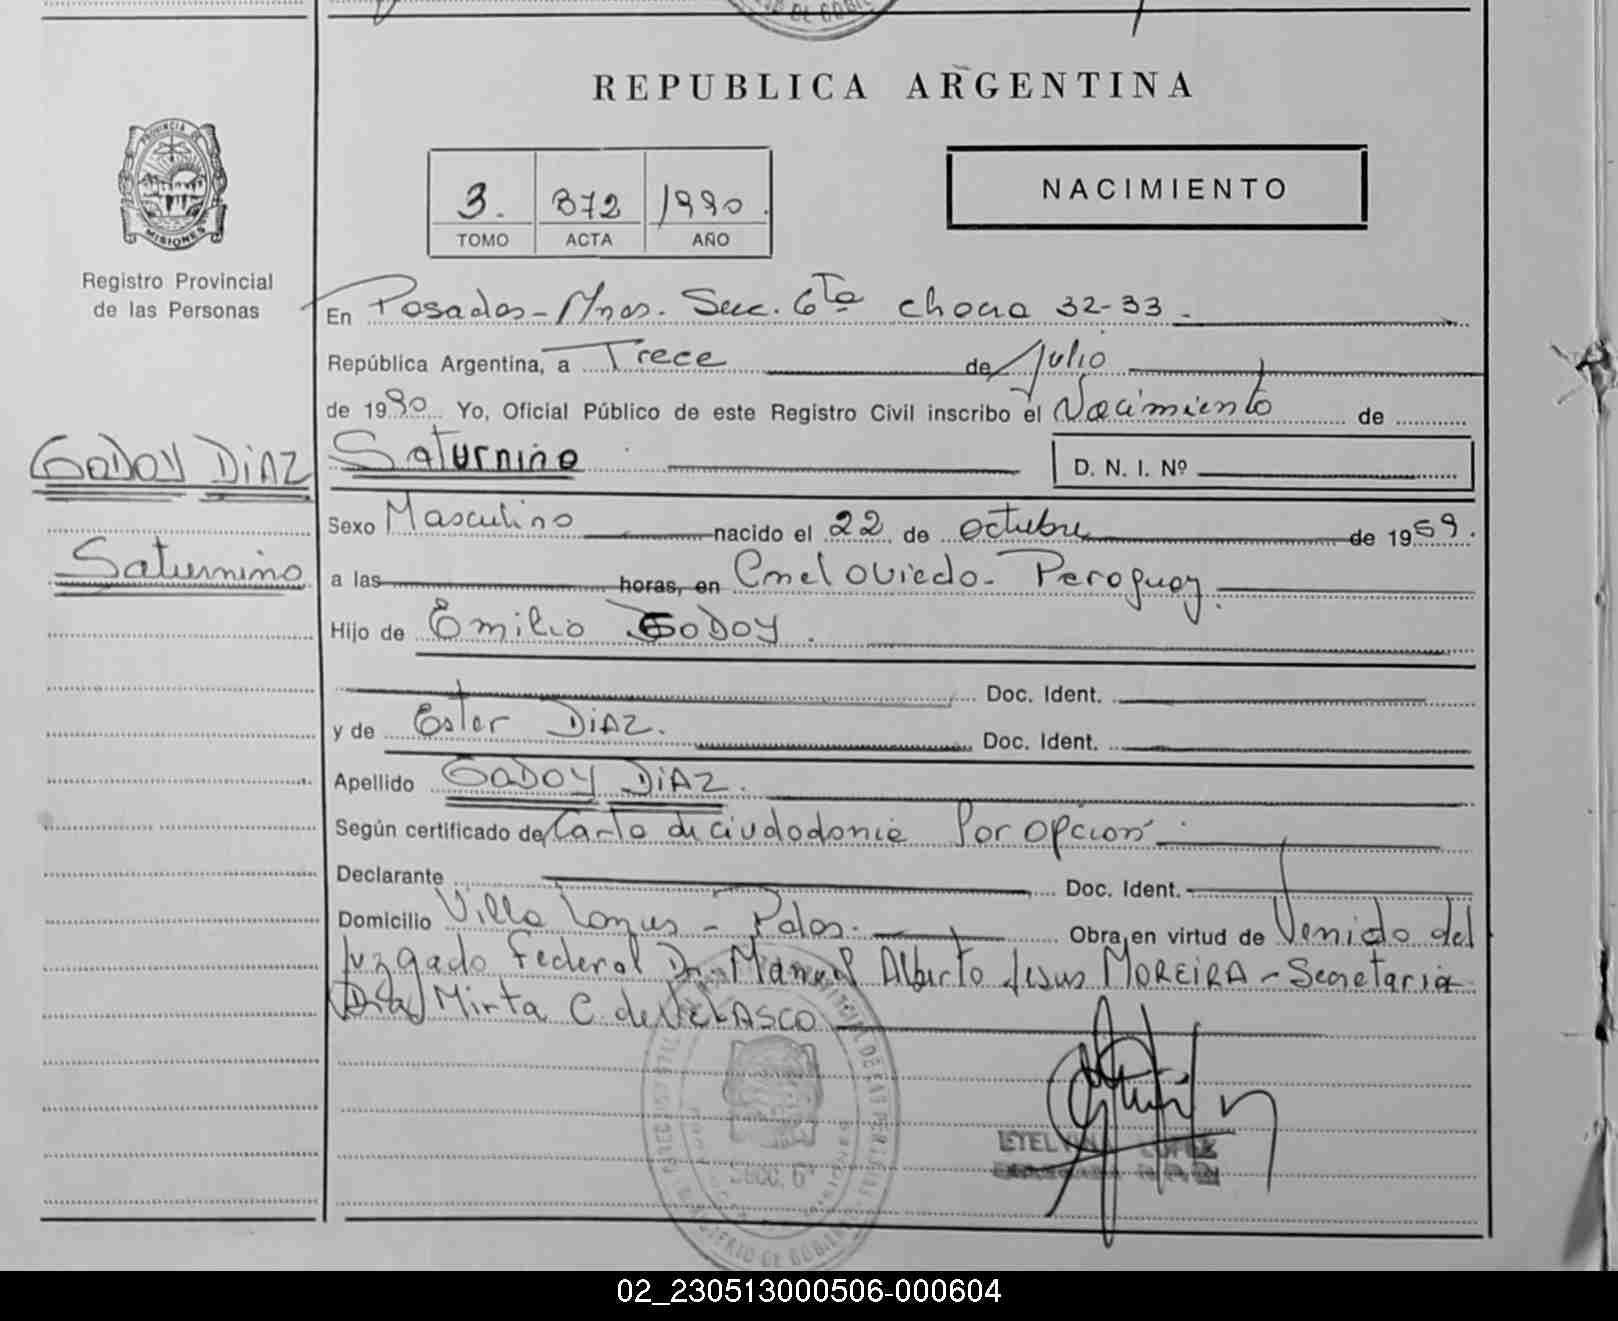 REPUBLICA ARGENTINA
PROVINCIA DE
MISIONES
Registro Provincial
de las Personas
3. 872 1990.
TOMO ACTA AÑO
NACIMIENTO
En Posadas - Mnes. Secc. 6ta chacra 32-33.
República Argentina, a Trece de Julio
de 1990 Yo, Oficial Público de este Registro Civil inscribo el Nacimiento de
GODOY DIAZ
Saturnino
Saturnino D. N. I. Nº
Sexo Masculino nacido el 22 de octubre de 1959.
a las horas, en Cnel Oviedo - Paraguay.
Hijo de Emilio GODOY.
Doc. Ident.
y de Ester DIAZ. Doc. Ident.
Apellido GODOY DIAZ.
Según certificado de Carta de ciudadanía Por opción
Declarante Doc. Ident.
Domicilio Villa - Pdas. Obra, en virtud de Venido del
Juzgado Federal Dr. Manuel Alberto Jesus MOREIRA - Secretaria
Dra Mirta C. de VELASCO
Secc. 6ª
02_230513000506-000604